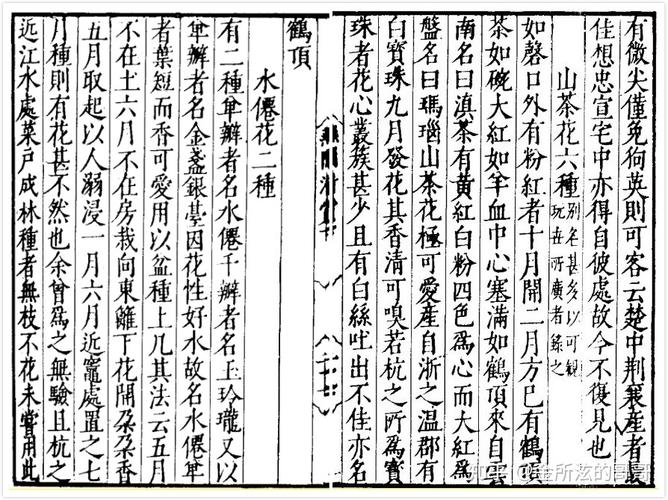 有微尖僅免狗英則可客云楚中荆襄產者最
佳想忠宣宅中亦得自彼處故今不復見也
山茶花六種
別名甚多以可觀
玩並所廣者錄之
如磬口外有粉紅者十月開二月方巳有鶴頂
茶如碗大紅如羊血中心塞滿如鶴頂來自雲
南名曰滇茶有黃紅白粉四色爲心而大紅爲
盤名曰瑪瑙山茶花極可愛產自浙之温郡有
白寶珠九月發花其香清可嗅若杭之所爲寶
珠者花心叢簇甚少且有白絲吐出不佳亦名
鶴頂
水僊花二種
有二種单瓣者名水僊千瓣者名玉玲瓏又以
单瓣者名金盞銀臺因花性好水故名水僊单
者葉短而香可愛用以盆種上几其法云五月
不在土六月不在房栽向東籬下花開朵朵香
五月取起以人溺浸一月六月近竈處置之七
月種則有花甚不然也余曾爲之無驗且杭之
近江水處菜戶成林種者無枝不花未嘗用此
知乎 @金所泫的哥哥